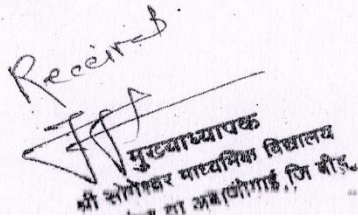 Received.
मुख्याध्यापक
श्री सोमेश्वर माध्यमिक विद्यालय
ता अंबाजोगाई, जि बीड.